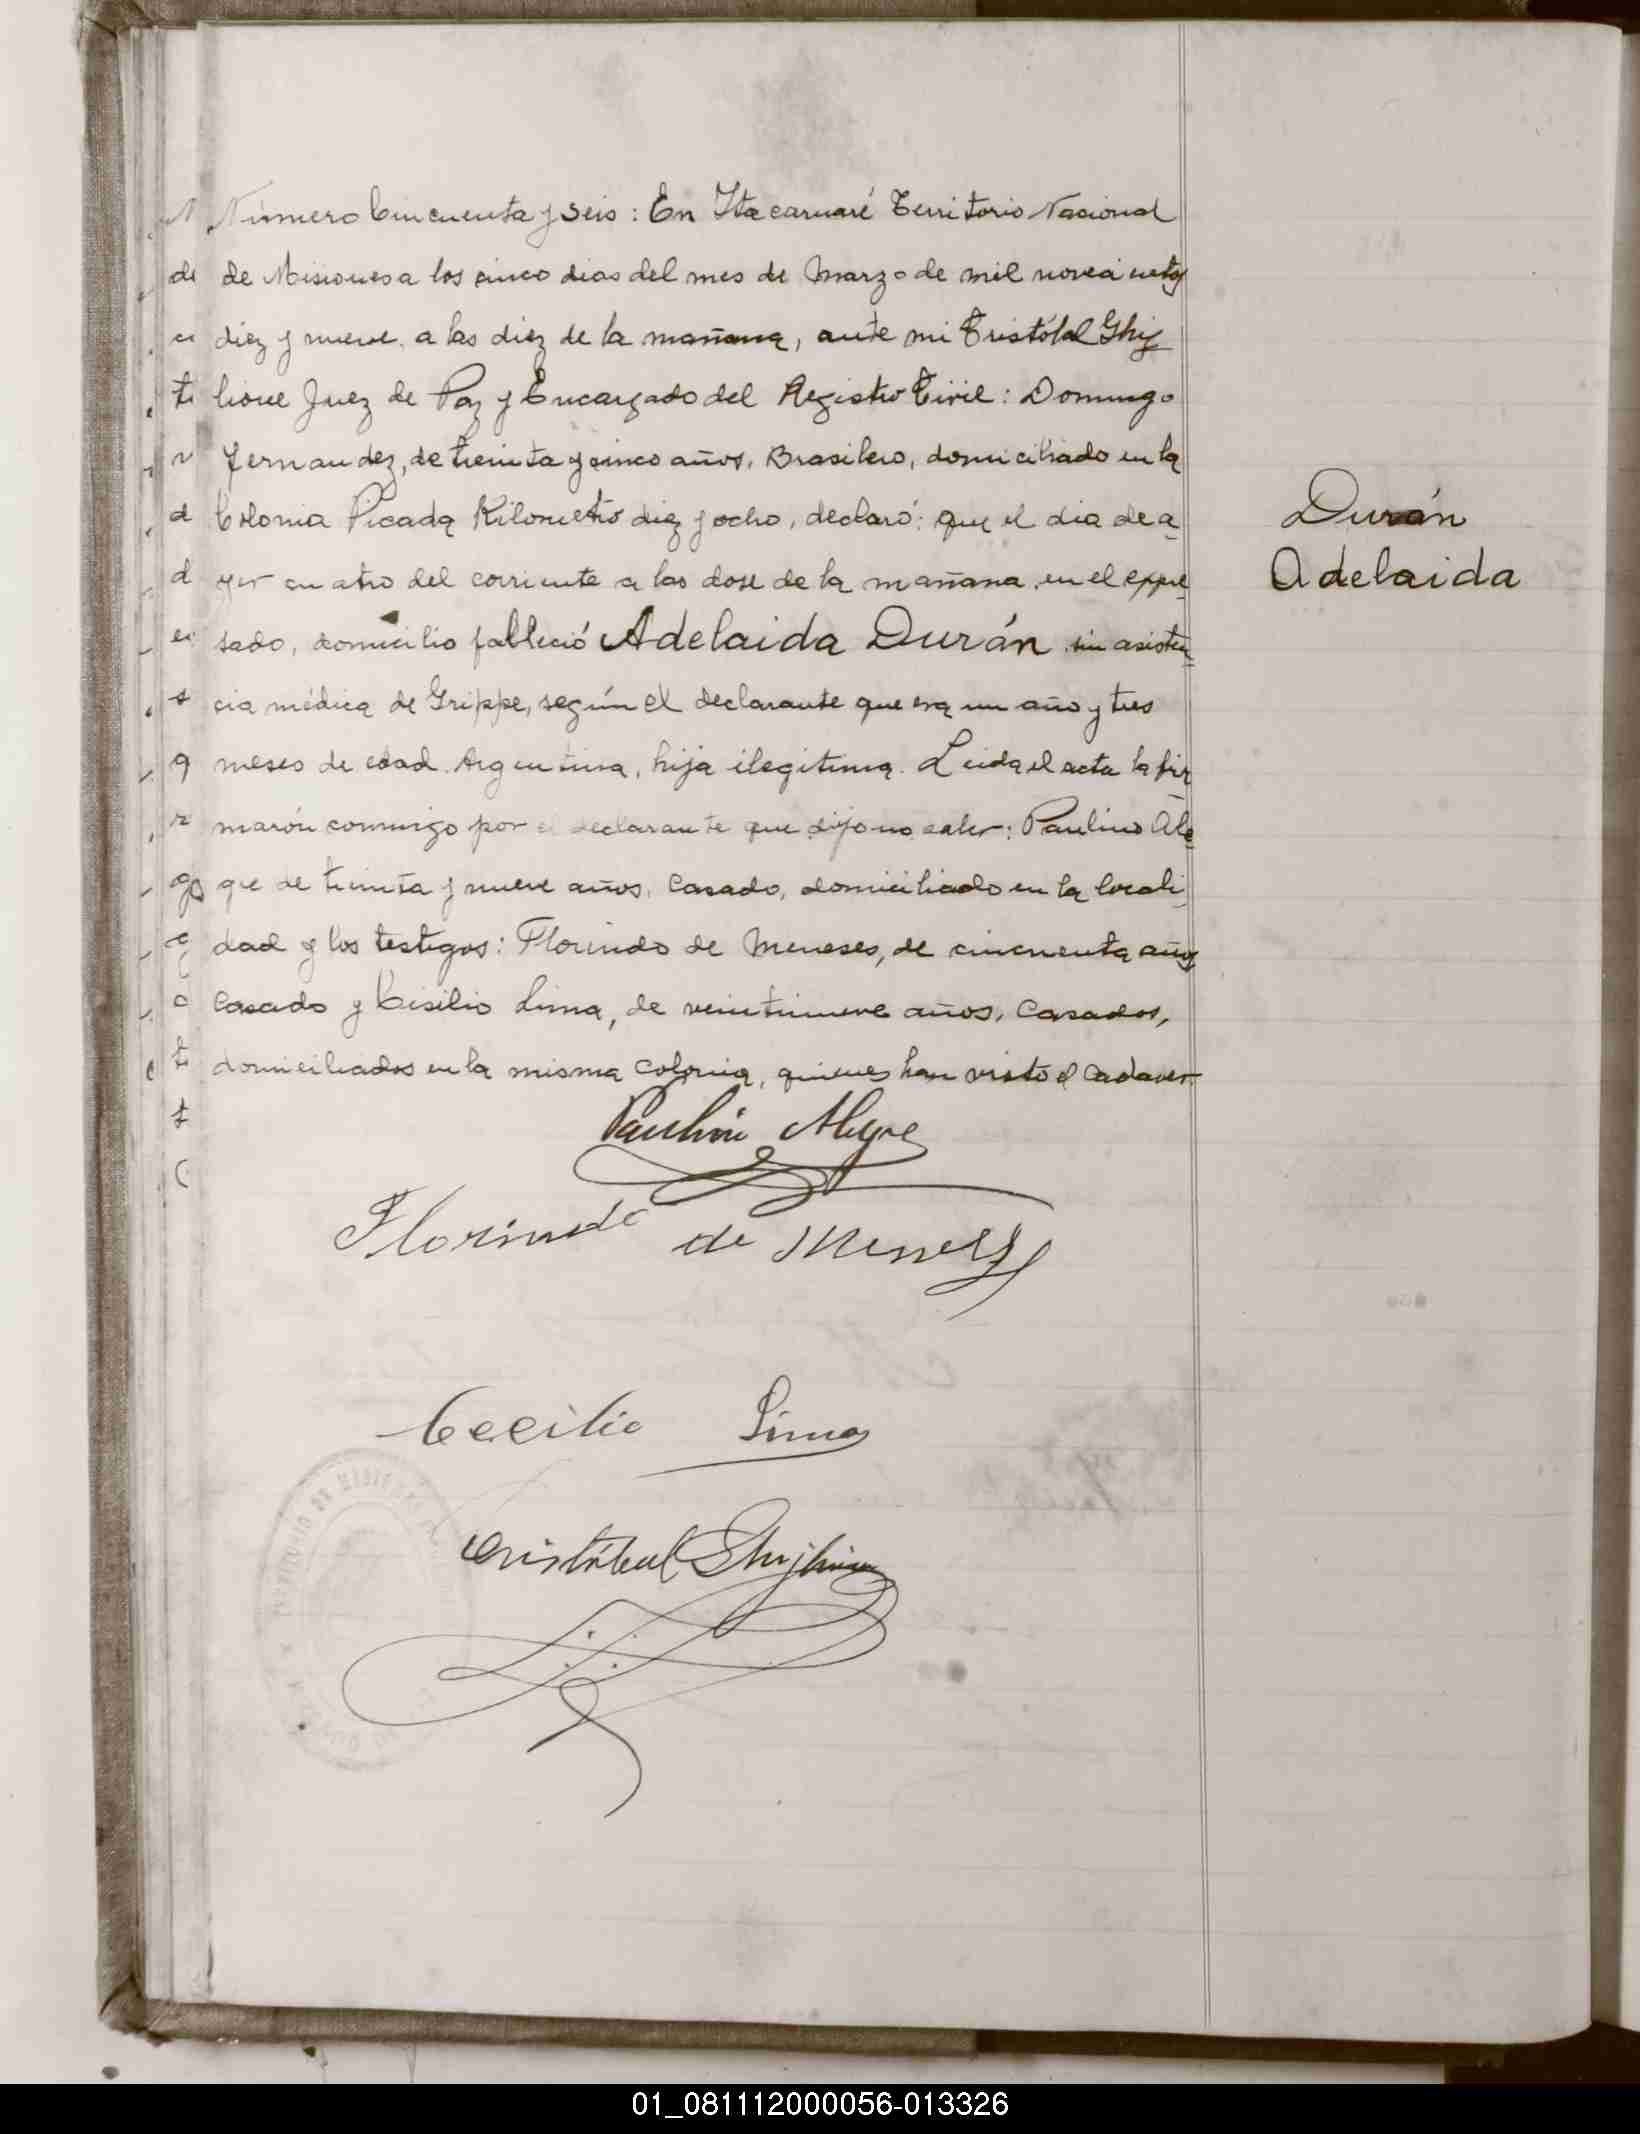 Número Cincuenta y seis: En Itacaruaré Territorio Nacional
de Misiones a los cinco dias del mes de Marzo de mil novecientos
diez y nueve, a las diez de la mañana, ante mi Cristóbal Ghig
lione Juez de Paz y Encargado del Registro Civil: Domingo
Fernandez, de treinta y cinco años, Brasilero, domiciliado en la
Colonia Picada Kilometro diez y ocho, declaró: que el dia de a_
yer cuatro del corriente a las dose de la mañana, en el expre_
sado, domicilio falleció Adelaida Durán sin asisten_
cia médica de Grippe, según el declarante que era un año y tres
meses de edad, Argentina, hija ilegitima. Leida el acta la fir_
marón conmigo por el declarante que dijo no saber: Paulino Ale_
gre de treinta y nueve años, Casado, domiciliado en la locali_
dad y los testigos: Florindo de Meneses, de cincuenta años
Casado y Cisilio Lima, de veintinueve años, Casados,
domiciliados en la misma Colonia, quienes han visto el Cadaver.
Durán
Adelaida
Paulino Alegre
Florindo de Menezes
Cecilio Lima
Cristóbal Ghiglione
TERRITORIO DE MISIONES
01_081112000056-013326